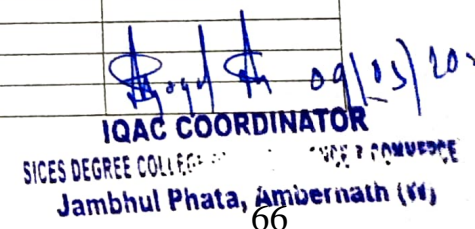 09/03/20
IQAC COORDINATOR
SICES DEGREE COLLEGE & COMMERCE
Jambhul Phata, Ambernath (W)
66